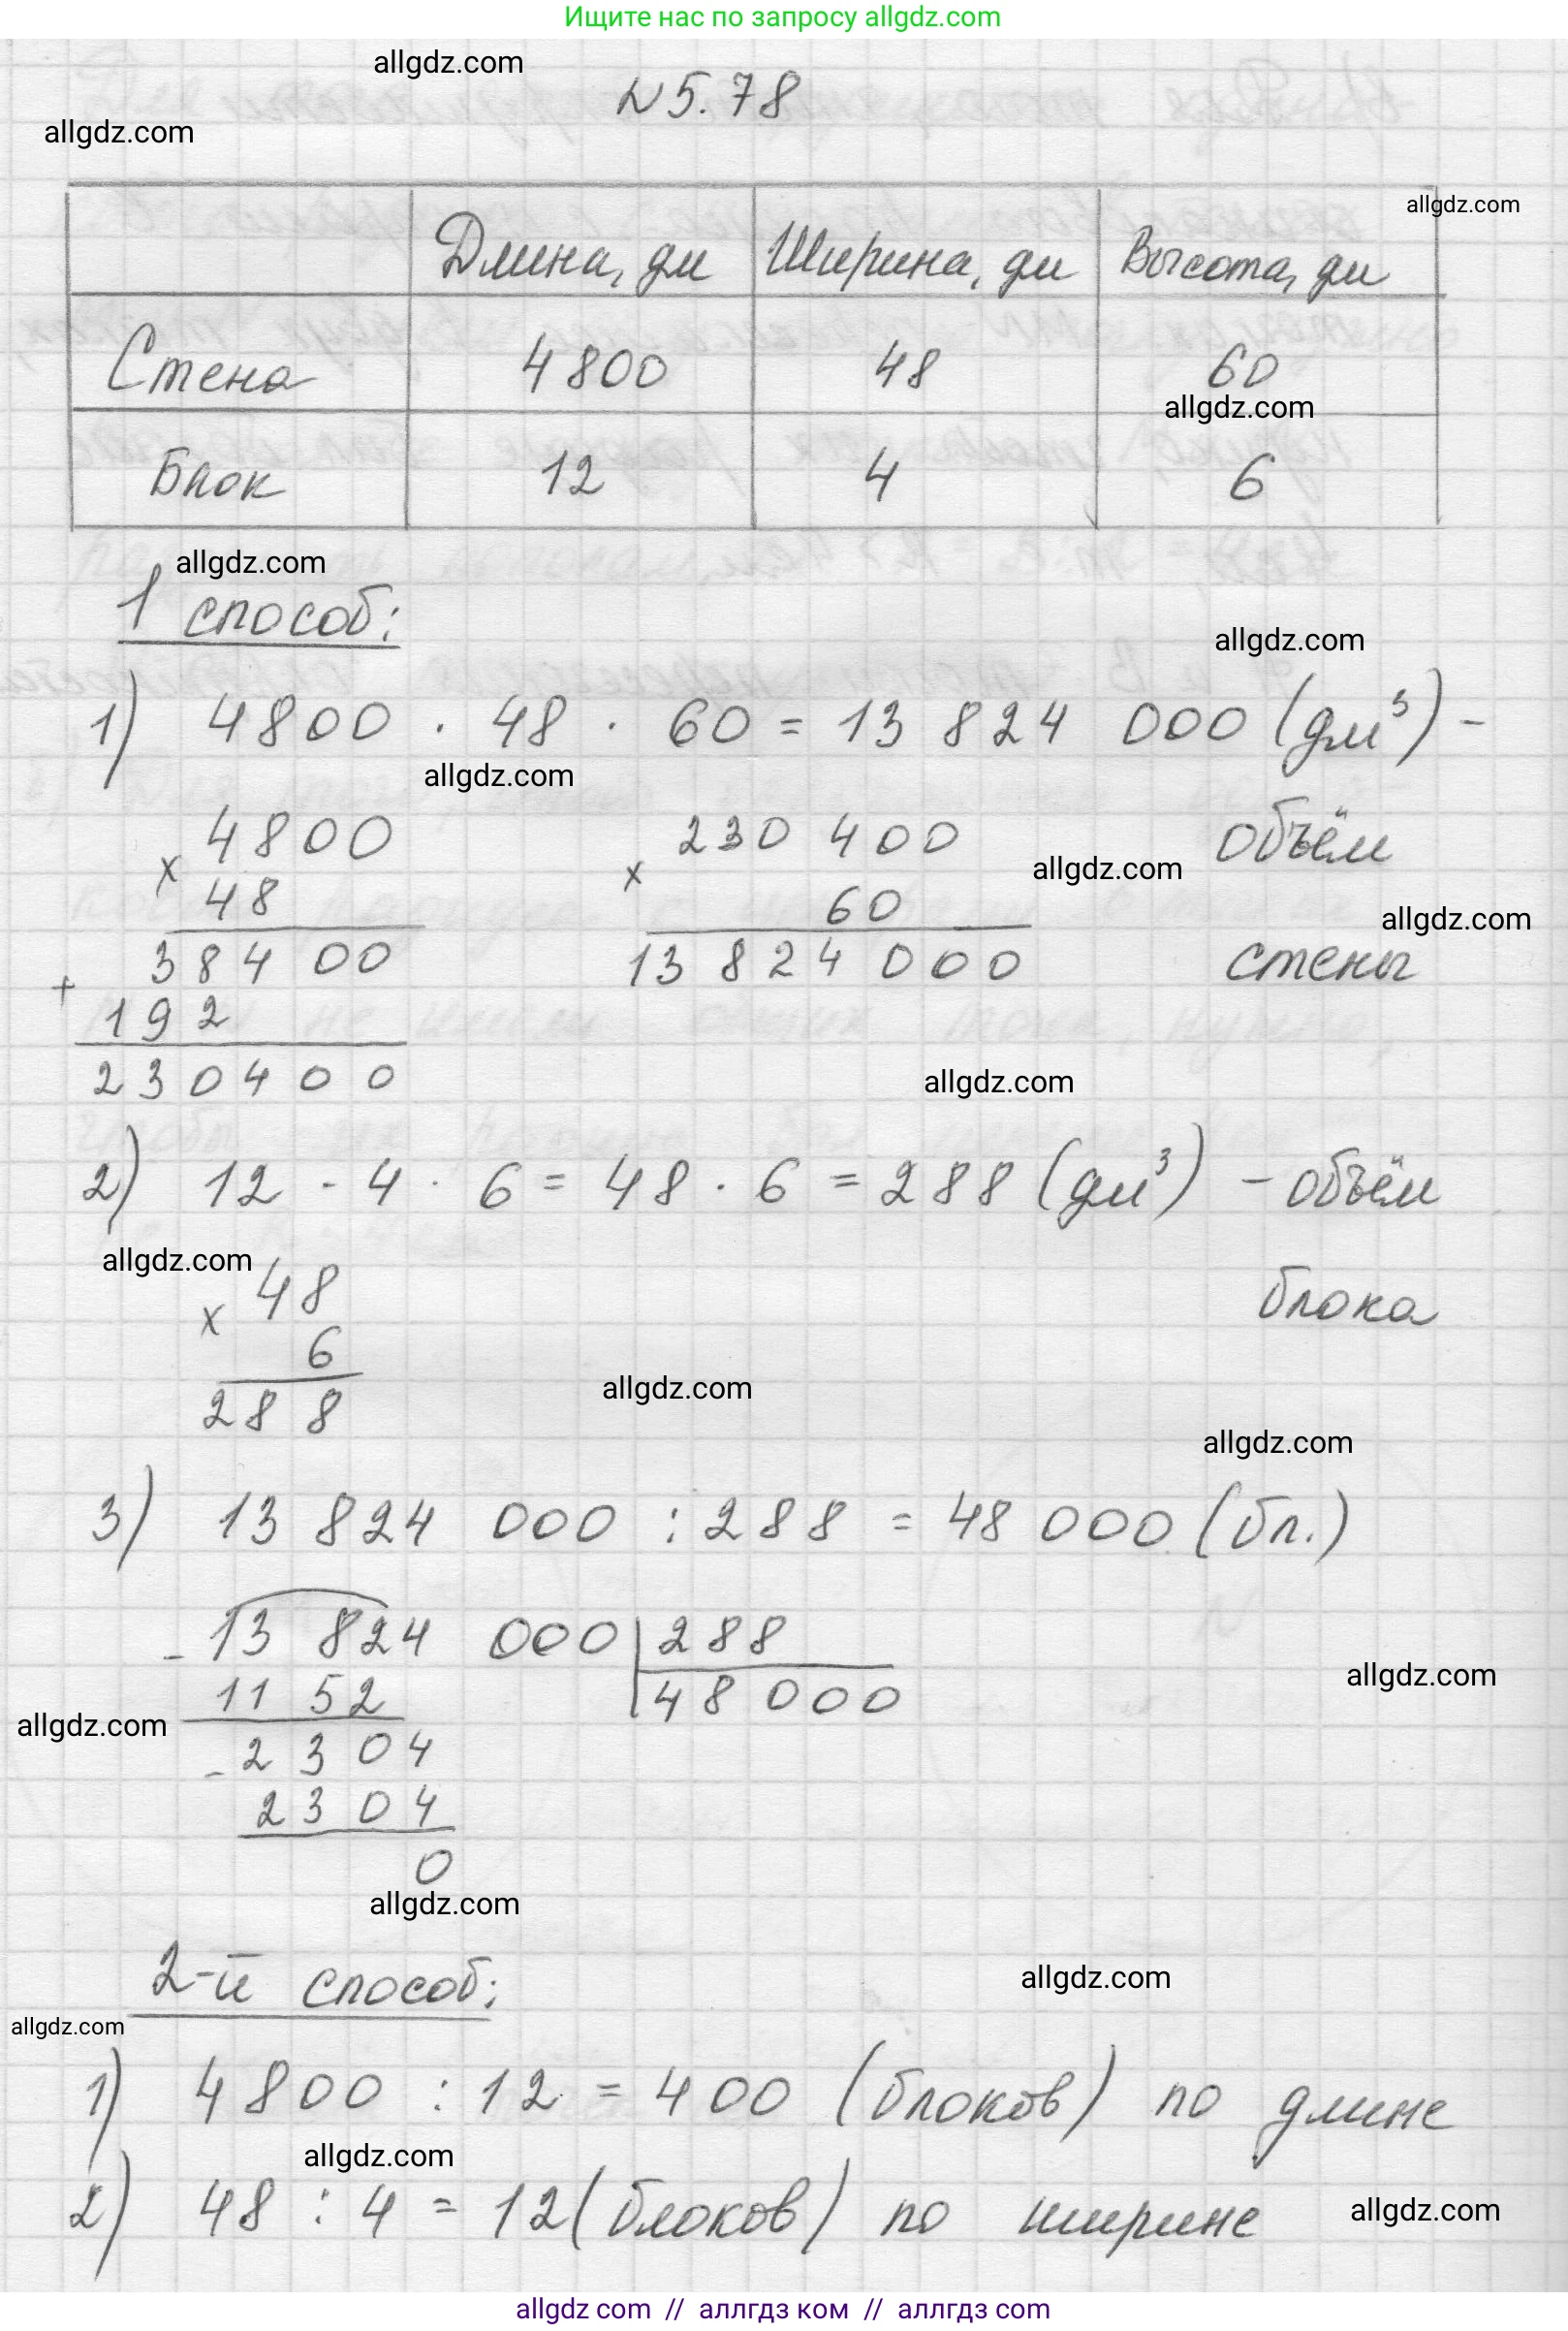 Ищите нас по запросу allgdz.com
allgdz.com
№5.78
allgdz.com
allgdz.com
Длина, дм Ширина, дм Высота, дм
Стена 4800 48 60
allgdz.com
Блок 12 4 6
allgdz.com
1 способ:
allgdz.com
1) 4800 · 48 · 60 = 13 824 000 (дм³) -
allgdz.com
× 4800 × 230 400 объём
allgdz.com
48 60
allgdz.com
38400 13 824 000 стены
+ 192
230400
allgdz.com
2) 12 · 4 · 6 = 48 · 6 = 288 (дм³) - объём
allgdz.com
× 48 блока
6
allgdz.com
288
allgdz.com
3) 13 824 000 : 288 = 48 000 (бл.)
- 13 824 000 | 288
allgdz.com
11 52 48000
allgdz.com
- 2304
2304
0
allgdz.com
2-й способ:
allgdz.com
allgdz.com
1) 4800 : 12 = 400 (блоков) по длине
allgdz.com
2) 48 : 4 = 12 (блоков) по ширине
allgdz.com
allgdz com // аллгдз ком // аллгдз com